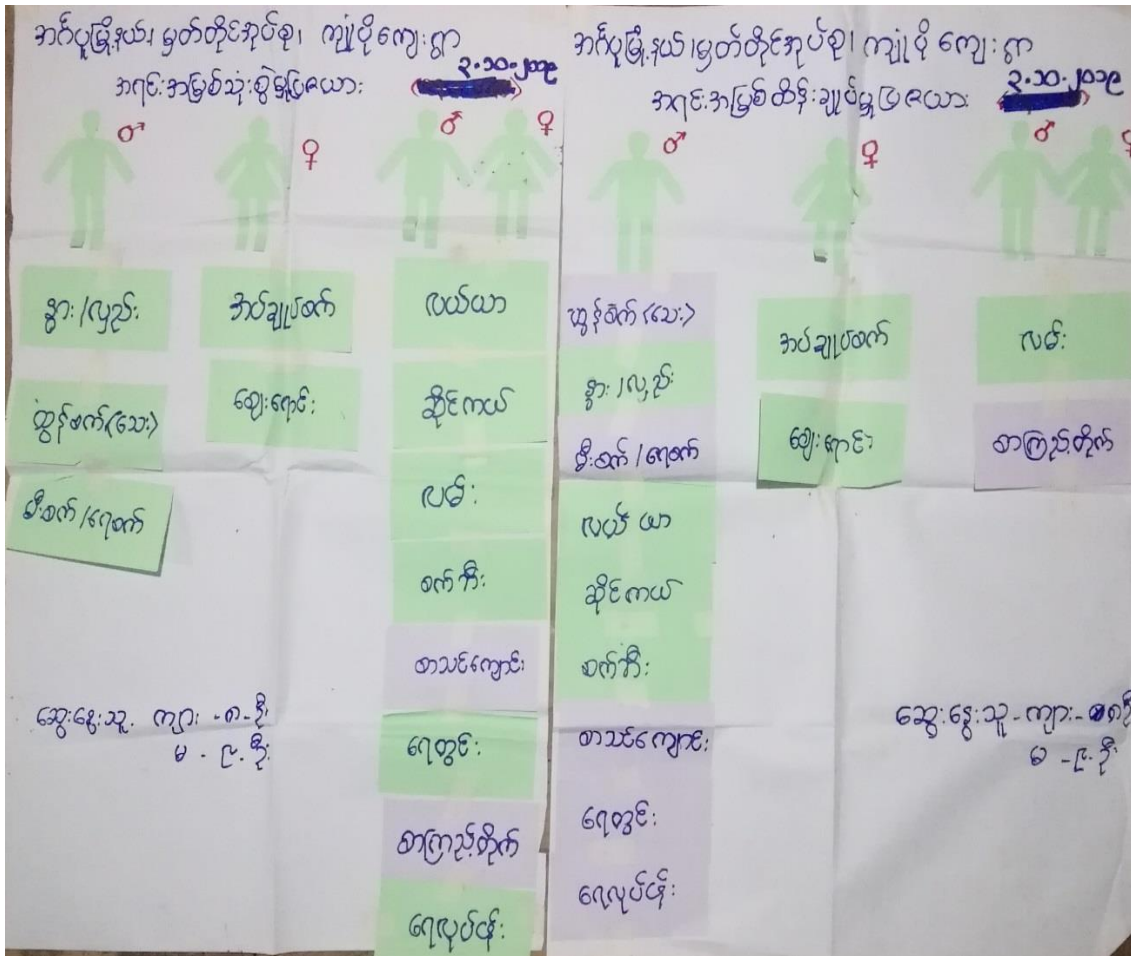 အင်္ဂပူမြို့နယ်၊ မှတ်တိုင်အုပ်စု၊ ကျုံပိုကျေးရွာ
အရင်းအမြစ်သုံးစွဲမှုပြဇယား
၃-၁၀-၂၀၁၉
♂
♀
♂ ♀
နွား/လှည်း
ထွန်စက်(သေး)
မီးစက်/ရေစက်
အပ်ချုပ်စက်
ဈေးရောင်း
လယ်ယာ
ဆိုင်ကယ်
လမ်း
စက်ဘီး
စာသင်ကျောင်း
ရေတွင်း
စာကြည့်တိုက်
ရေလုပ်ငန်း
ဆွေးနွေးသူ - ကျား - ၈ - ဦး
မ - ၉ - ဦး
အင်္ဂပူမြို့နယ်၊ မှတ်တိုင်အုပ်စု၊ ကျုံပိုကျေးရွာ
အရင်းအမြစ်ထိန်းချုပ်မှုပြဇယား
၃-၁၀-၂၀၁၉
♂
♀
♂ ♀
ထွန်စက်(သေး)
နွား/လှည်း
မီးစက်/ရေစက်
လယ်ယာ
ဆိုင်ကယ်
စက်ဘီး
စာသင်ကျောင်း
ရေတွင်း
ရေလုပ်ငန်း
အပ်ချုပ်စက်
ဈေးရောင်း
လမ်း
စာကြည့်တိုက်
ဆွေးနွေးသူ - ကျား - ၈ ဦး
မ - ၉ - ဦး